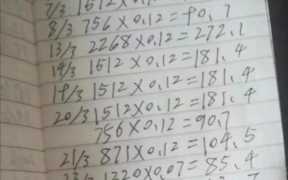 7/3 1512 x 0.
8/3 756 x 0.12 = 90.7
13/3 2268 x 0.12 = 272.1
14/3 1512 x 0.12 = 181.4
19/3 1512 x 0.12 = 181.4
20/3 1512 x 0.12 = 181.4
756 x 0.12 = 90.7
21/3 871 x 0.12 = 104.5
1220 x 0.07 = 85.4